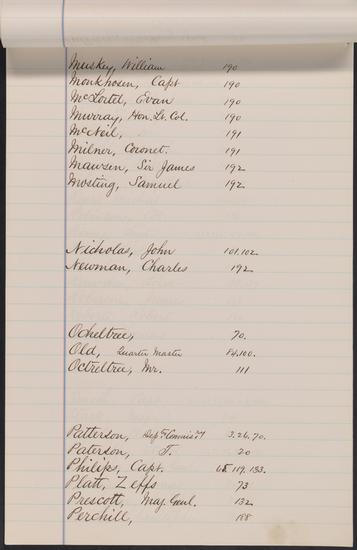 Muskey, William 190
Monkhosen, Capt 190
McLortel, Evan 190
Murray, Hon. Lt. Col. 190
McNeil, 191
Milner, Coronet. 191
Mawsen, Sir James 192
Mosting, Samuel 192
Nicholas, John 101,102
Newman, Charles 192
Ocheltree, 70.
Old, Quarter Master 84,100.
Octreltree, Mr. 111
Patterson, Depty Commisry 3.26.70.
Paterson, T. 20
Philips, Capt. 119.133.
Platt, Zeffs 73
Prescott, Maj. Genl. 132
Perchill, 188